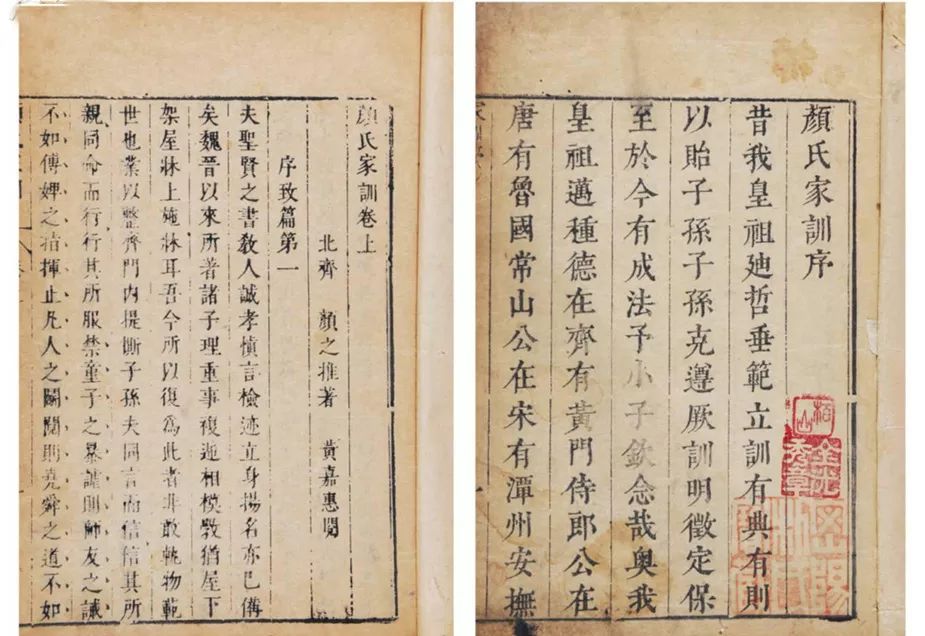 顏氏家訓序
昔我皇祖廸哲垂範立訓有典有則
以貽子孫子孫克遵厥訓明徵定保
至於今有成法予小子欽念哉奥我
皇祖邁種德在齊有黃門侍郎公在
唐有魯國常山公在宋有潭州安撫
顏氏家訓卷上
北齊 顏之推著 黃嘉惠閱
序致篇第一
夫聖賢之書教人誠孝慎言檢迹立身揚名亦已備
矣魏晉以來所著諸子理重事複遞相模斆猶屋下
架屋牀上施牀耳吾今所以復為此者非敢軌物範
世也業以整齊門内提撕子孫夫同言而信信其所
親同命而行行其所服禁童子之暴謔則師友之誡
不如傅婢之指揮止凡人之鬪鬩則堯舜之道不如